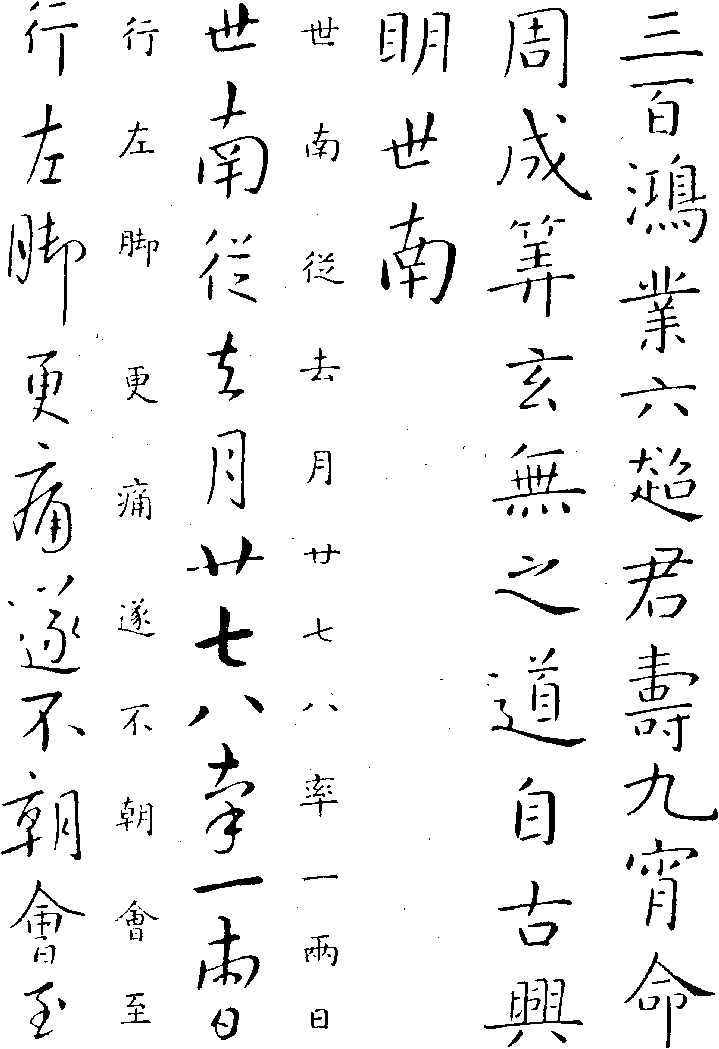 三百鴻業六超君壽九宵命
周成筭玄無之道自古興
明世南
世南從去月廿七八率一兩日
世南從去月廿七八率一兩日
行左脚更痛遂不朝會至
行左脚更痛遂不朝會至